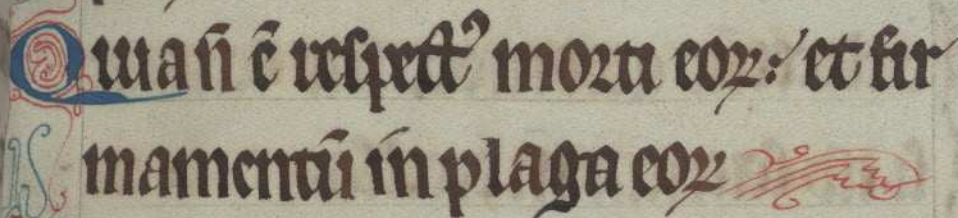 Quia n̄ ē respectꝰ morti eoꝝ: et fir
mamentū in plaga eoꝝ